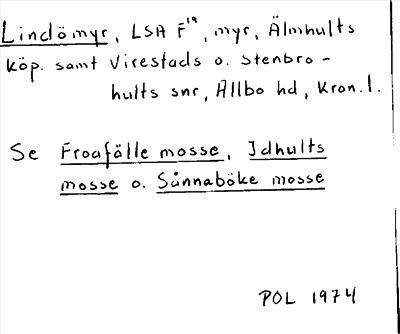 Lindömyr, LSA F¹⁹, myr, Älmhults
köp. samt Virestads o. Stenbro-
hults snr, Allbo hd, Kron.l.
Se Froafälle mosse, Idhults
mosse o. Sånnaböke mosse
POL 1974